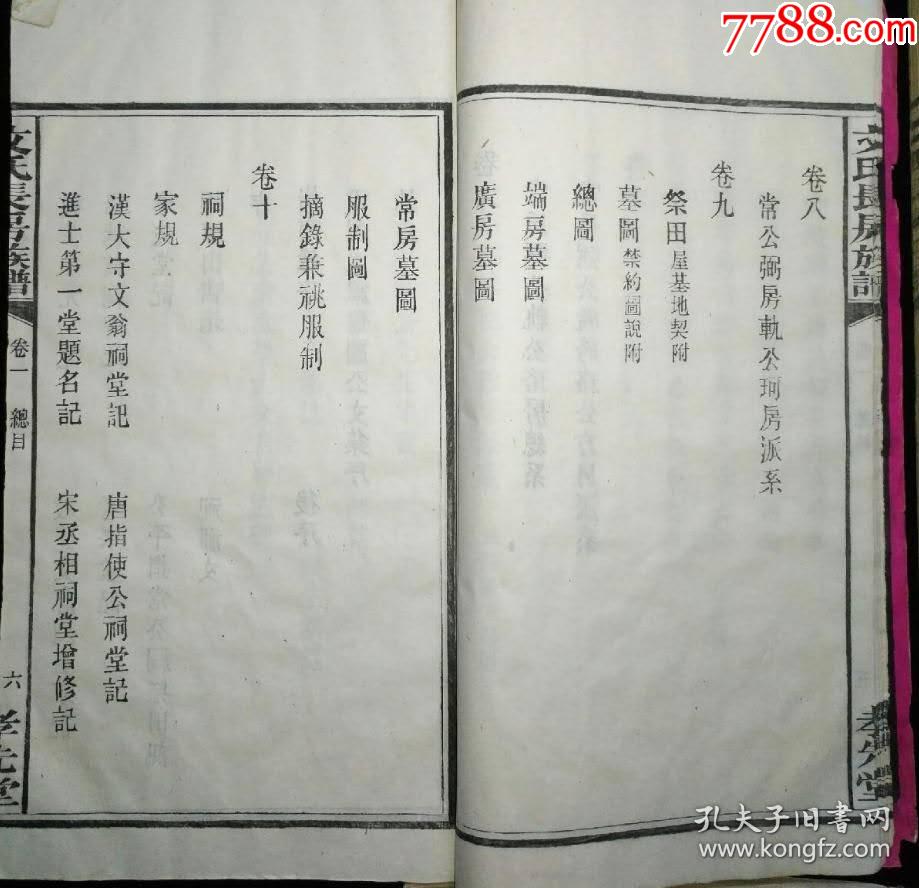 7788.com
文氏長房族譜
孝先堂
卷八
常公弼房軌公珂房派系
卷九
祭田屋基地契附
墓圖禁約圖說附
總圖
端房墓圖
廣房墓圖
常房墓圖
服制圖
摘錄兼祧服制
卷十
祠規
家規
漢大守文翁祠堂記 唐指使公祠堂記
進士第一堂題名記 宋丞相祠堂增修記
文氏長房族譜 卷一 總目 六 孝先堂
孔夫子旧书网
www.kongfz.com